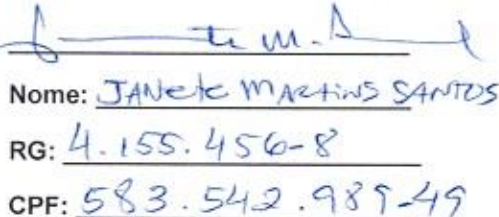 Nome: JANete MARtiNS SANTOS
RG: 4.155.456-8
CPF: 583.542.989-49